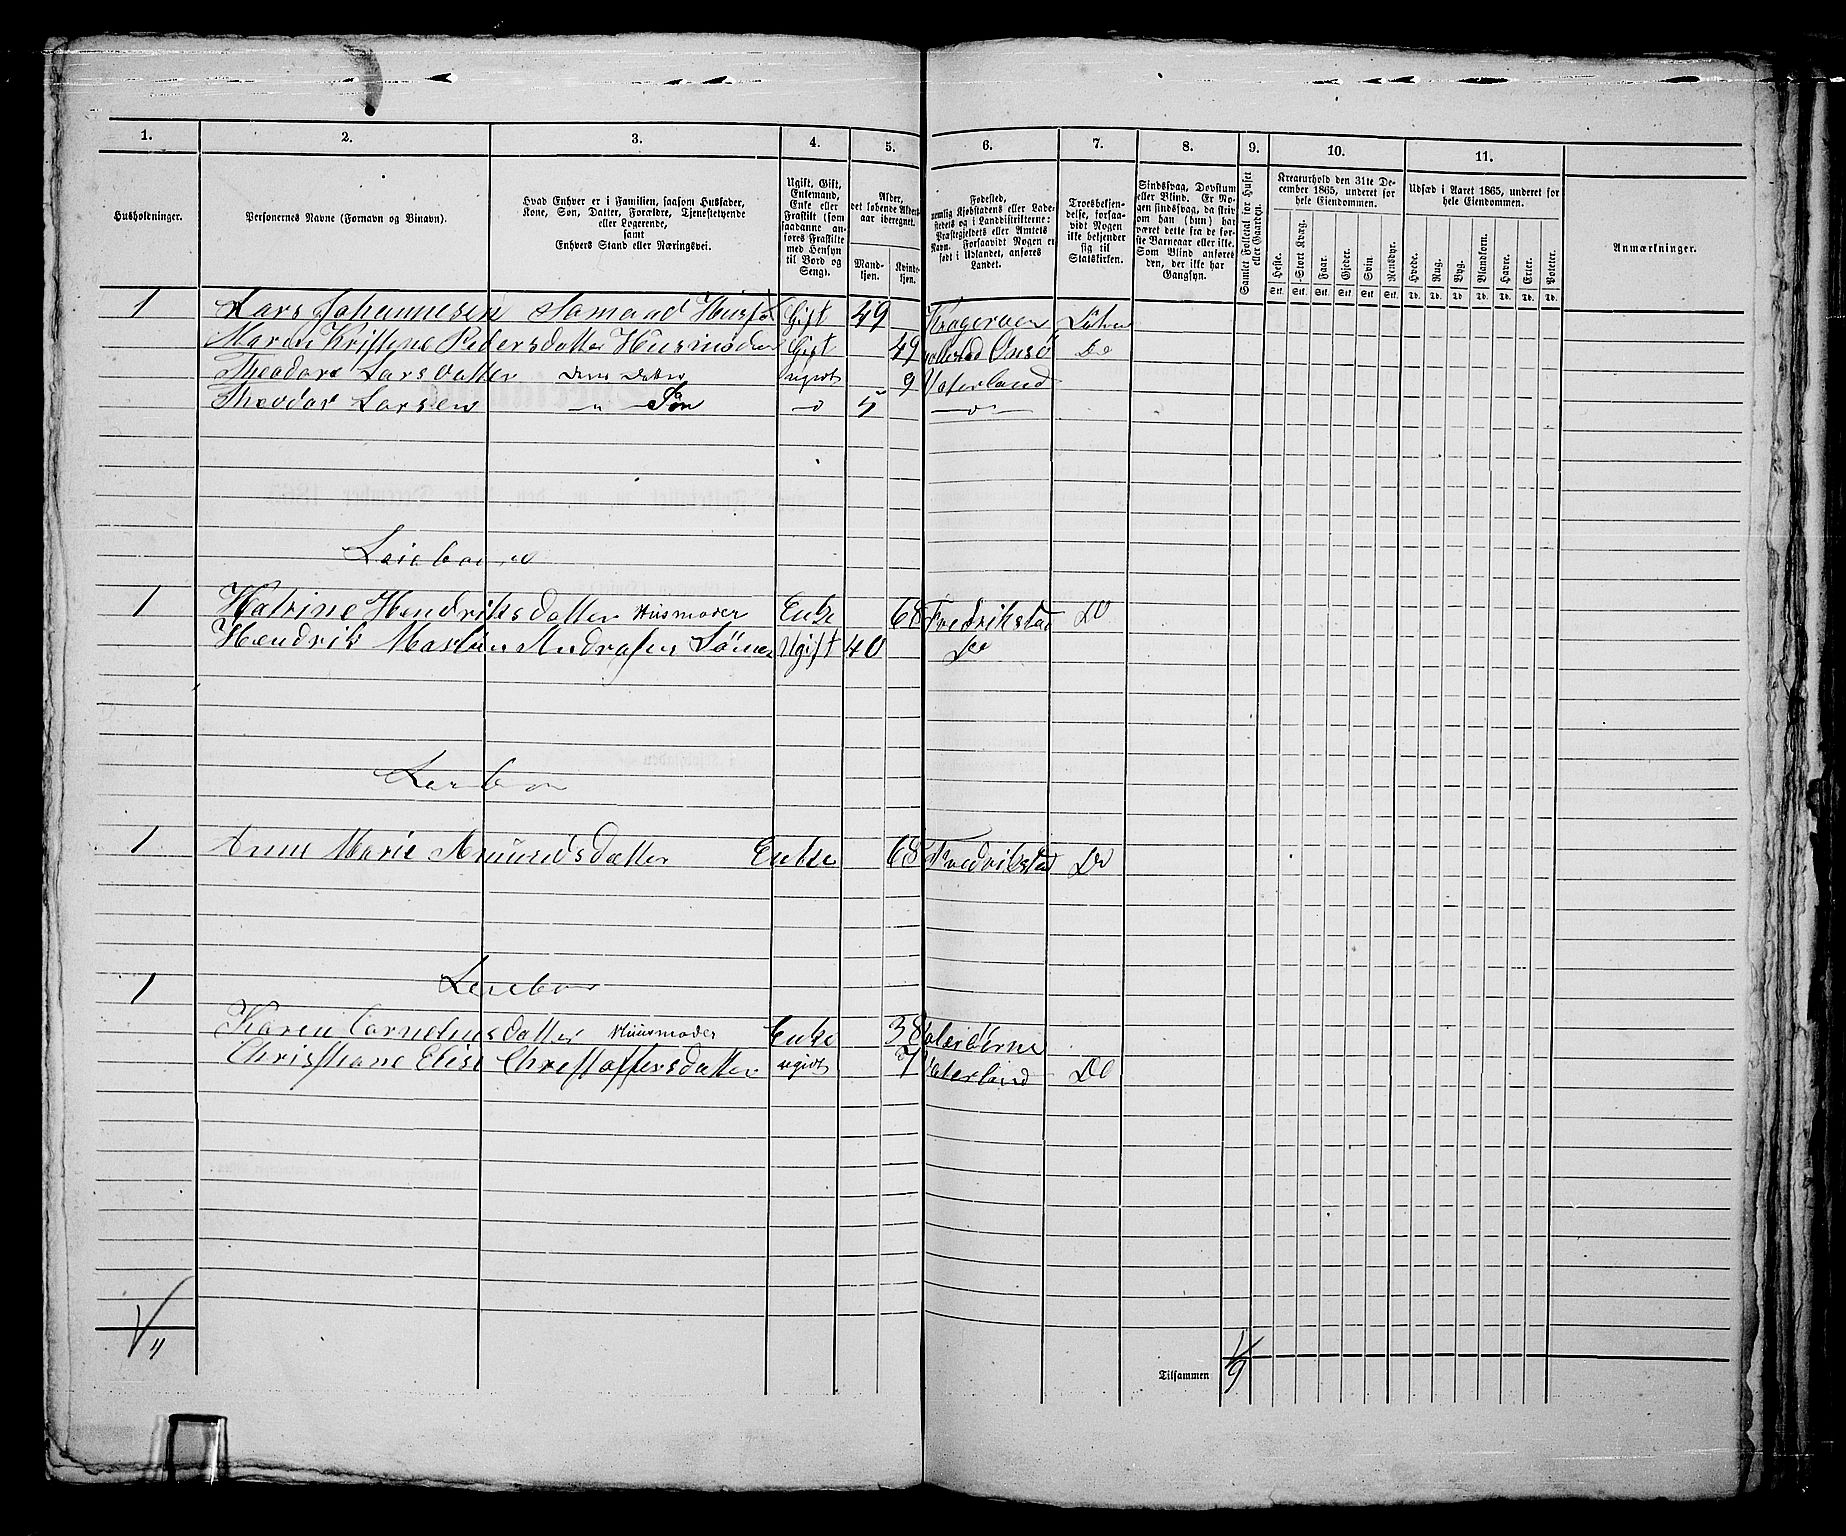 1. 2. 3. 4. 5. 6. 7. 8. 9. 10. 11.
Husholdninger.
Personernes Navne (Fornavn og Binavn).
Hvad Enhver er i Familien, saasom Husfader,
Kone, Søn, Datter, Forældre, Tjenestetyende
eller Logerende,
samt
Enhvers Stand eller Næringsvei.
Ugift, Gift,
Enkemand,
Enke eller
Fraskilt (som
saadanne an-
føres Fraskilte
med Hensyn
til Bord og
Seng).
Alder,
det løbende Alders-
aar iberegnet.
Mand-
kjøn.
Kvinde-
kjøn.
Fødested,
nemlig Kjøbstadens eller Lade-
stedets og i Landdistrikterne:
Præstegjeldets eller Amtets
Navn. Forsaavidt Nogen er
født i Udlandet, anføres
Landet.
Troesbekjen-
delse, forsaa-
vidt Nogen
ikke bekjender
sig til
Statskirken.
Sindssvag, Døvstum
eller Blind. Er No-
gen sindssvag, da skriv
om han (hun) har
været dette fra de før-
ste Barneaar eller ikke.
Som Blind anføres
den, der ikke har
Gangsyn.
Samlet Folketal for Huset
eller Gaarden.
Kreaturhold den 31te De-
cember 1865, underet for
hele Eiendommen.
Heste. Stort Kvæg. Faar. Gjeder. Svin. Rensdyr.
Stk. Stk. Stk. Stk. Stk. Stk.
Udsæd i Aaret 1865, underet for
hele Eiendommen.
Hvede. Rug. Byg. Blandkorn. Havre. Erter. Poteter.
Td. Td. Td. Td. Td. Td. Td.
Anmærkninger.
1 Lars Johannesen Gift 49 Krageroen
Maren Kristine Pedersdatter Husmoder Gift 49 Onsö Do
Theodore Larsdatter Datter ugivt 9 Vaterland
Theodor Larsen — " — Søn — " — 5 — " —
1 Katrine Hendriksdatter Husmoder Enke 68 Fredrikstad Do
Hendrik Ugift 40 Do
1 Anne Marie Amundsdatter Enke 68 Fredrikstad Do
1
Karen Corneliusdatter Huusmoder Enke 38
Christiane Elise Christoffersdatter ugivt 7 Vaterland Do
4
Tilsammen 9